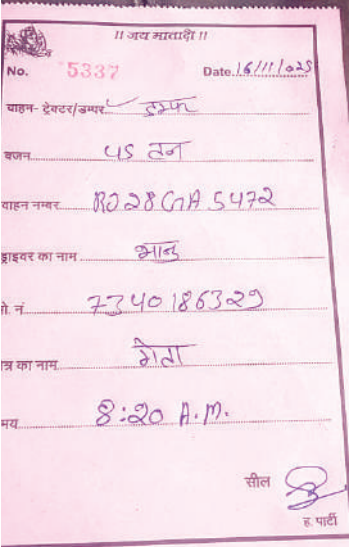 ।। जय मातादी ।।
No. 5337 Date. 16/11/025
वाहन- ट्रेक्टर/डम्पर डम्फर
वजन 45 टन
वाहन नम्बर RJ28GA5472
ड्राइवर का नाम भानु
मो. नं 7340186329
त्र का नाम गेता
मय 8:20 A.M.
सील
ह. पार्टी